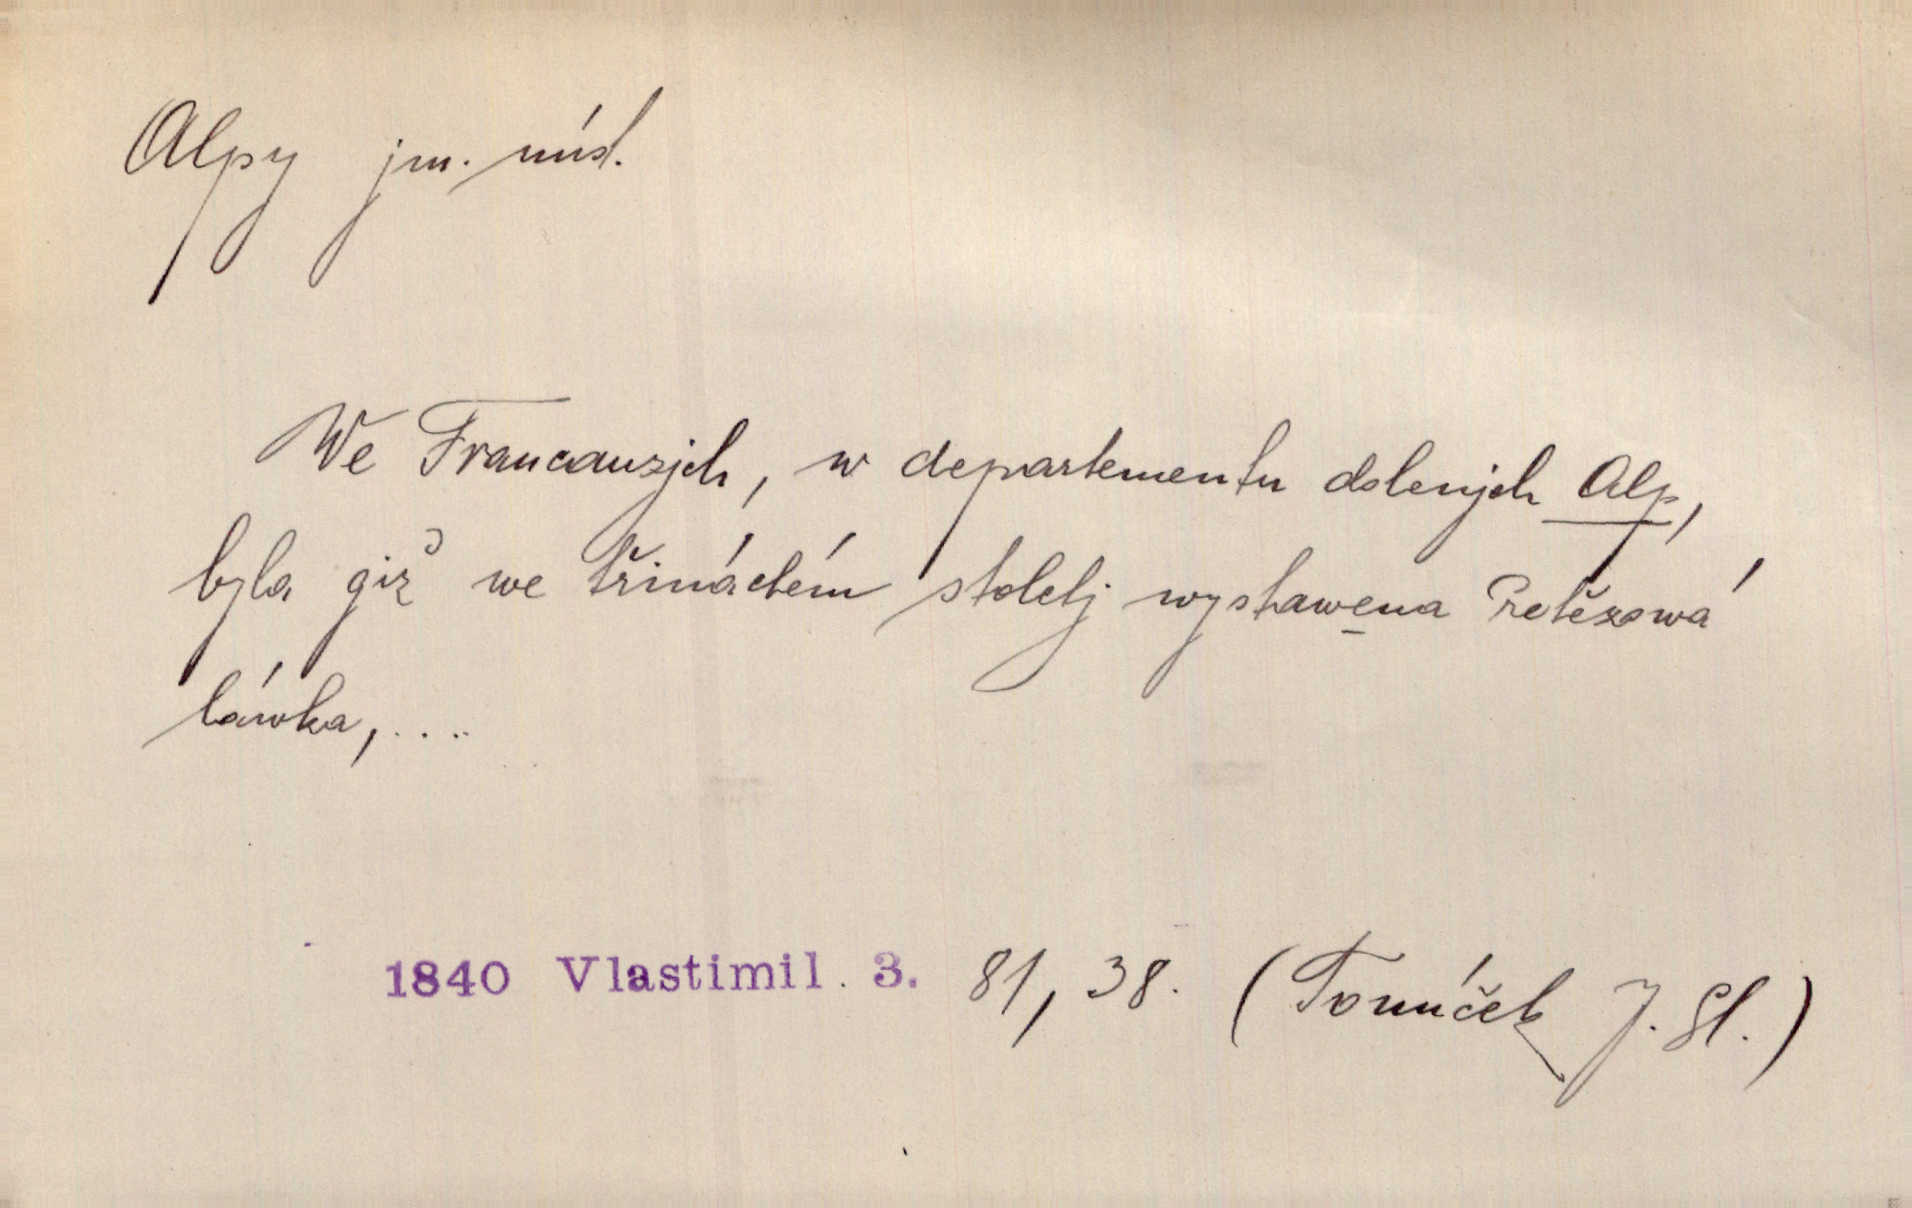 Alpy jm. míst.
We Francauzjch, w departementu dolenjch Alp,
byla giž we třináctém stoletj wystawena řetězowá
láwka, ....
1840 Vlastimil. 3. 81, 38. (Tomíček J. Sl.)